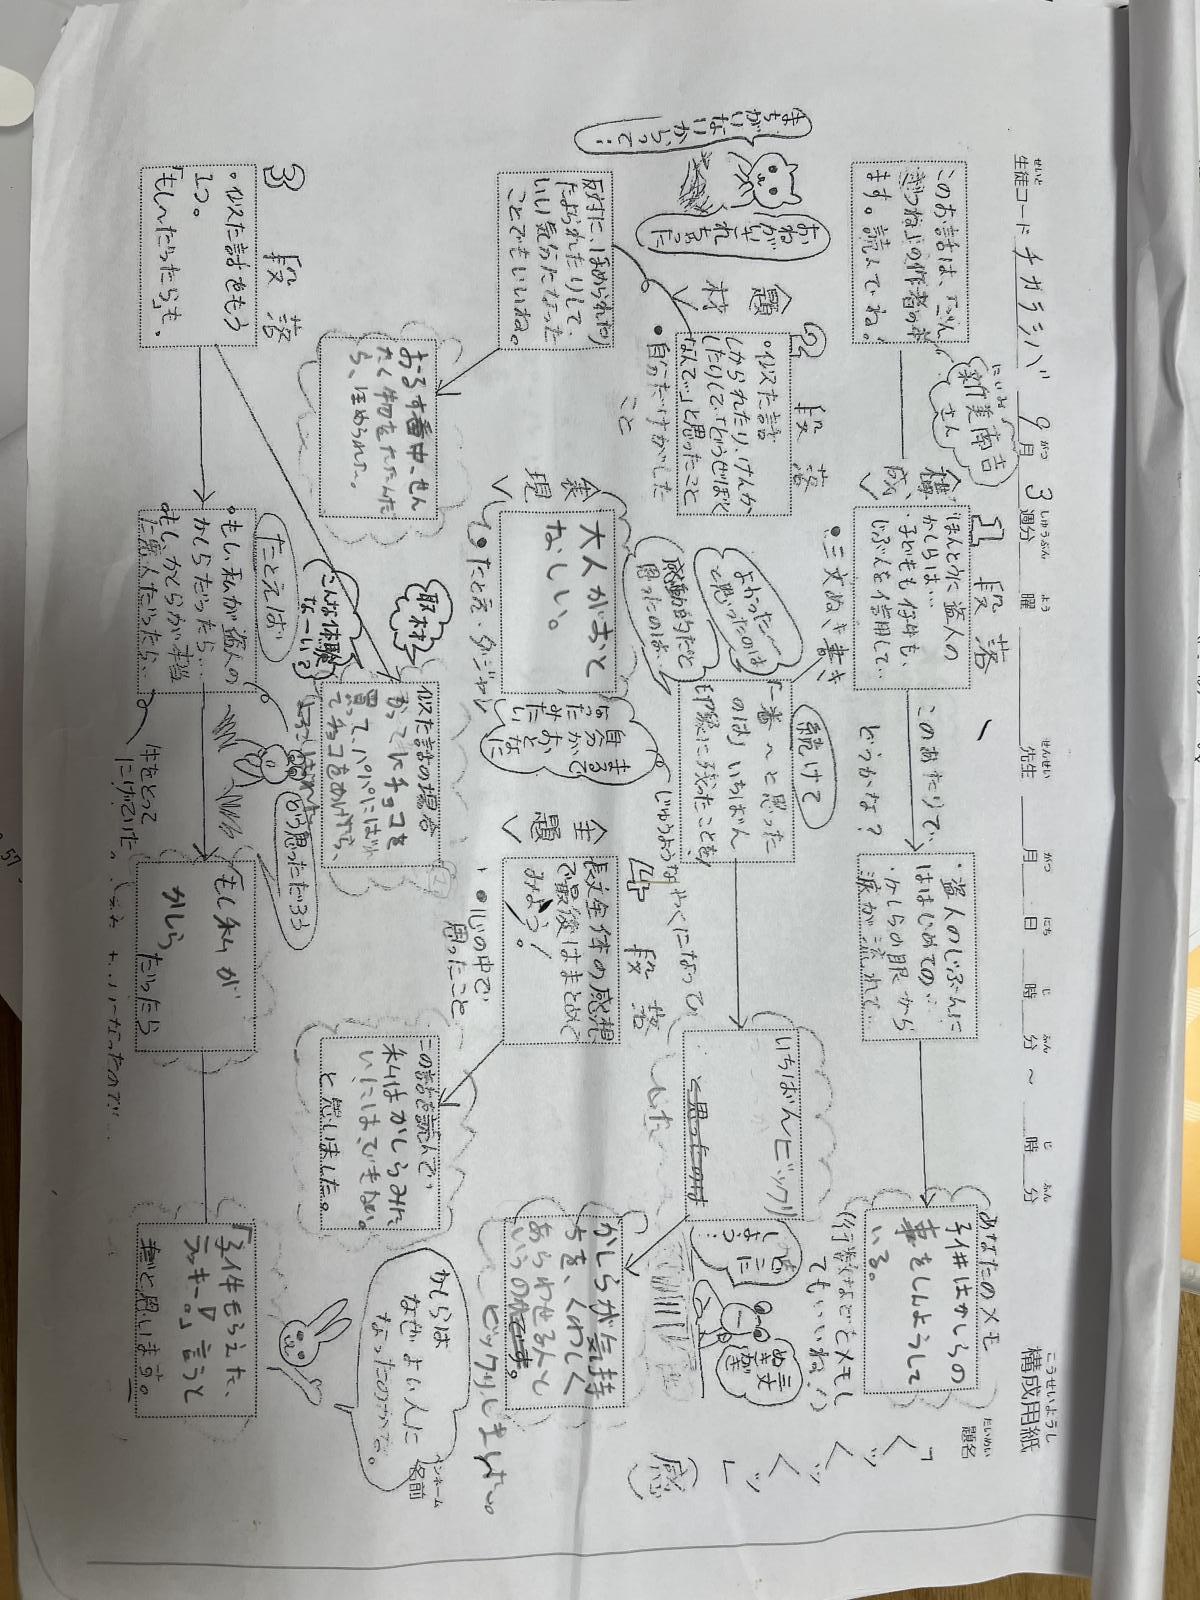 構成用紙
こうせいようし
生徒コード チカラシバ 9月 3週分 曜 先生 月 日 時 分 ~ 時 分
せいと がつ しゅうぶん よう せんせい がつ にち じ ふん じ ふん
題名
だいめい
「くッくッくッ」
(感)
あなたのメモ
このお話は、「ごん
ぎつね」の作者のお
ます。読んでね。
にいみ
新美南吉
さん
<構成>
1 段落
ほんとうに盗人の
かしらは…
・子どもも仔牛も、
じぶんを信用して…
このあたりで、
どうかな?
・盗人のじぶんに
はじめての…
・かしらの眼から
涙が流れて…
子供はかしらの
事をしんようして
いる。
(行数などをメモし
てもいいね!)
・三文ぬき書き
<題材>
おねが
れちゃった
まち
がい
ない
からって…
2 段落
・似た話
しかられたり、けんか
したりして、「どうせぼく
なんて…」と思ったこと
・自分だけがした
こと
よかった〜
と思ったのは
感動的だと
思ったのは…
続けて
「一番〜と思った
のは」いちばん
印象に残ったことを
いちばんビックリ
と思ったのは
した
どこに
しよう…
ぬき書き
三文が
反対に、ほめられたり
たよられたりして、
いい気分になった
ことでもいいね。
<表現>
大人がおと
なしい。
まるで
自分が
おとなに
なったみたい
・たとえ・ダジャレ
じゅうような やくになって
<主題>
4 段落
長文全体の感想
で最後はまとめて
みよう!
・心の中で
思ったこと
かしらが気持
ちを、くわしく
あらわせる人と
いうのがです。
ビックリしました。
おるす番中、せん
たく物をたたんだ
ら、ほめられた…。
取材
こんな体験
な〜い?
似た話の場合
かってにチョコを
買って、パパにばれ
てチョコをあげたら、
この話を読んで、
私はかしらみた
いにはできない。
と思いました。
かしらは
なぜ、よい人に
なったのかな。
ペンネーム
名前
3 段落
・似た話をもう
1つ。
「もし〜だったら」も。
たとえば
・もし私が盗人の
かしらだったら…
もし、かしらが本当
た悪人だったら…
から思っただろう
牛をとって
にげていた。
もし私が
かしら
だったら
「子牛もらえた、
ラッキー。」と言うと
思います。